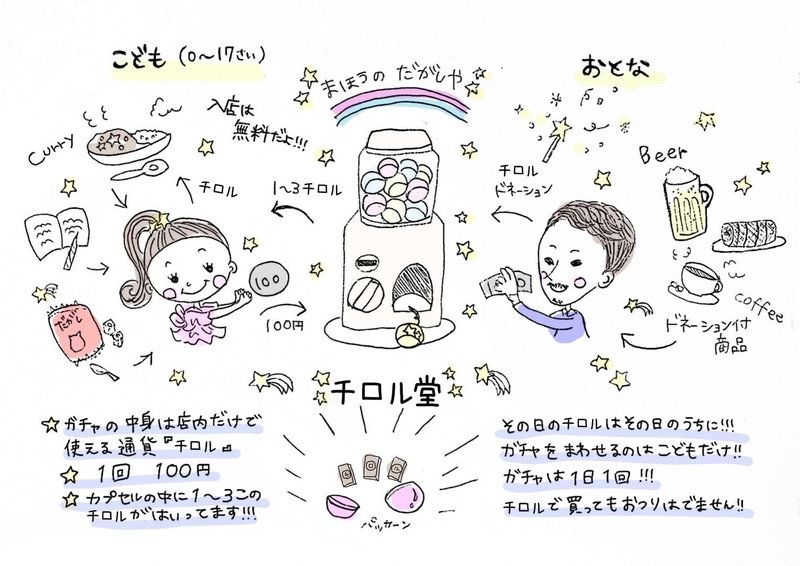 こども (0〜17さい)
まほうの だがしや
おとな
入店は
無料だよ!!!
Curry
チロル
1〜3チロル
チロル
ドネーション
Beer
100
だがし
100円
coffee
ドネーション付
商品
チロル堂
ガチャの中身は店内だけで
使える通貨『チロル』
1回 100円
カプセルの中に1〜3この
チロルがはいってます!!!
パッカーン
その日のチロルはその日のうちに!!!
ガチャをまわせるのはこどもだけ!!
ガチャは1日1回!!!
チロルで買ってもおつりはでません!!